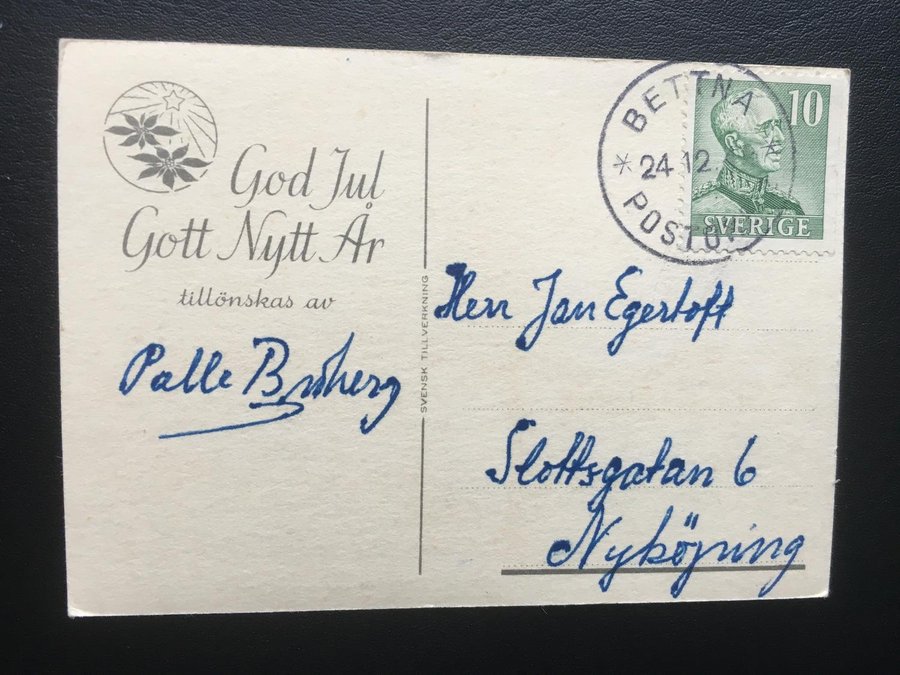 God Jul
Gott Nytt År
tillönskas av
Palle
SVENSK TILLVERKNING
BETTNA
24.12.
10
SVERIGE
Herr Jan Egerloff
Slottsgatan 6
Nyköping